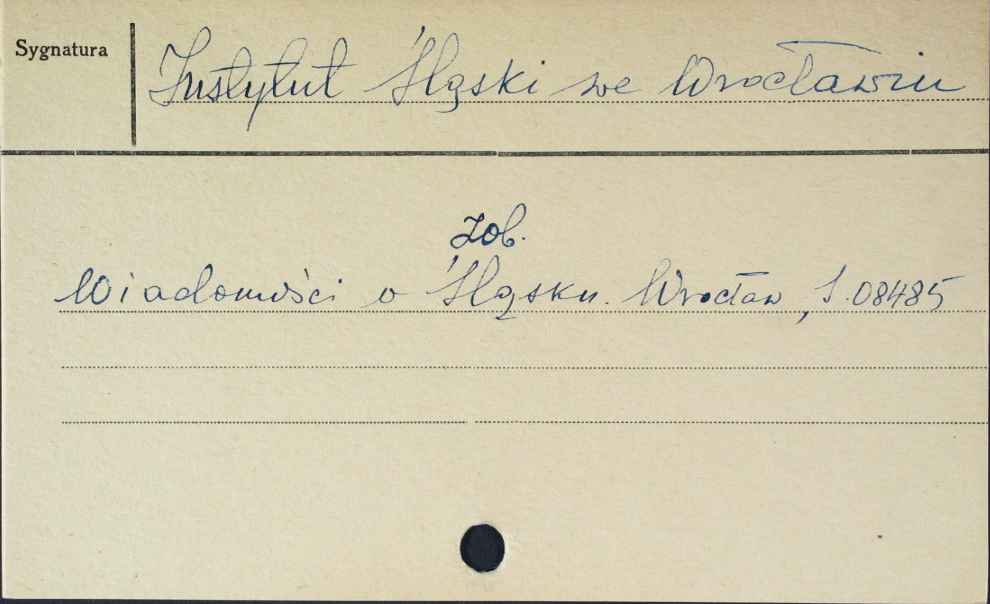 Sygnatura
Instytut Śląski we Wrocławiu
Zob.
Wiadomości o Śląsku. Wrocław, S.08485